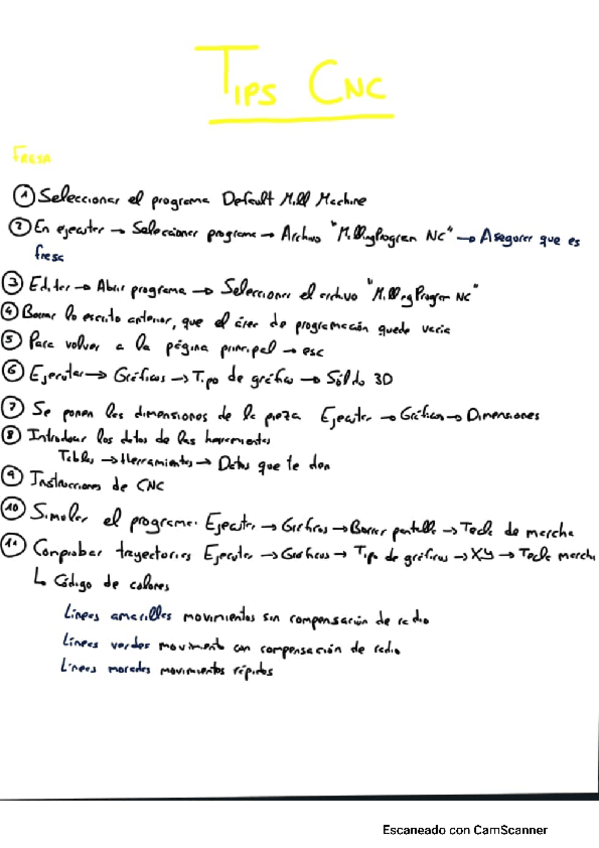 Tips CNC
Fresa
① Seleccionar el programa Default Mill Machine
② En ejecutar → Seleccionar programa → Archivo "MillingProgram NC" → Asegurar que es
fresa
③ Editar → Abrir programa → Seleccionar el archivo "MillingProgram NC"
④ Borrar lo escrito anterior, que el área de programación quede vacía
⑤ Para volver a la página principal → esc
⑥ Ejecutar → Gráficos → Tipo de gráfico → Sólido 3D
⑦ Se ponen las dimensiones de la pieza Ejecutar → Gráficos → Dimensiones
⑧ Introducir los datos de las herramientas
Tablas → Herramientas → Datos que te dan
⑨ Instrucciones de CNC
⑩ Simular el programa. Ejecutar → Gráficos → Borrar pantalla → Tecla de marcha
⑪ Comprobar trayectorias Ejecutar → Gráficos → Tipo de gráficos → XY → Tecla marcha
↳ Código de colores
Líneas amarillas movimientos sin compensación de radio
Líneas verdes movimiento con compensación de radio
Líneas moradas movimientos rápidos
Escaneado con CamScanner